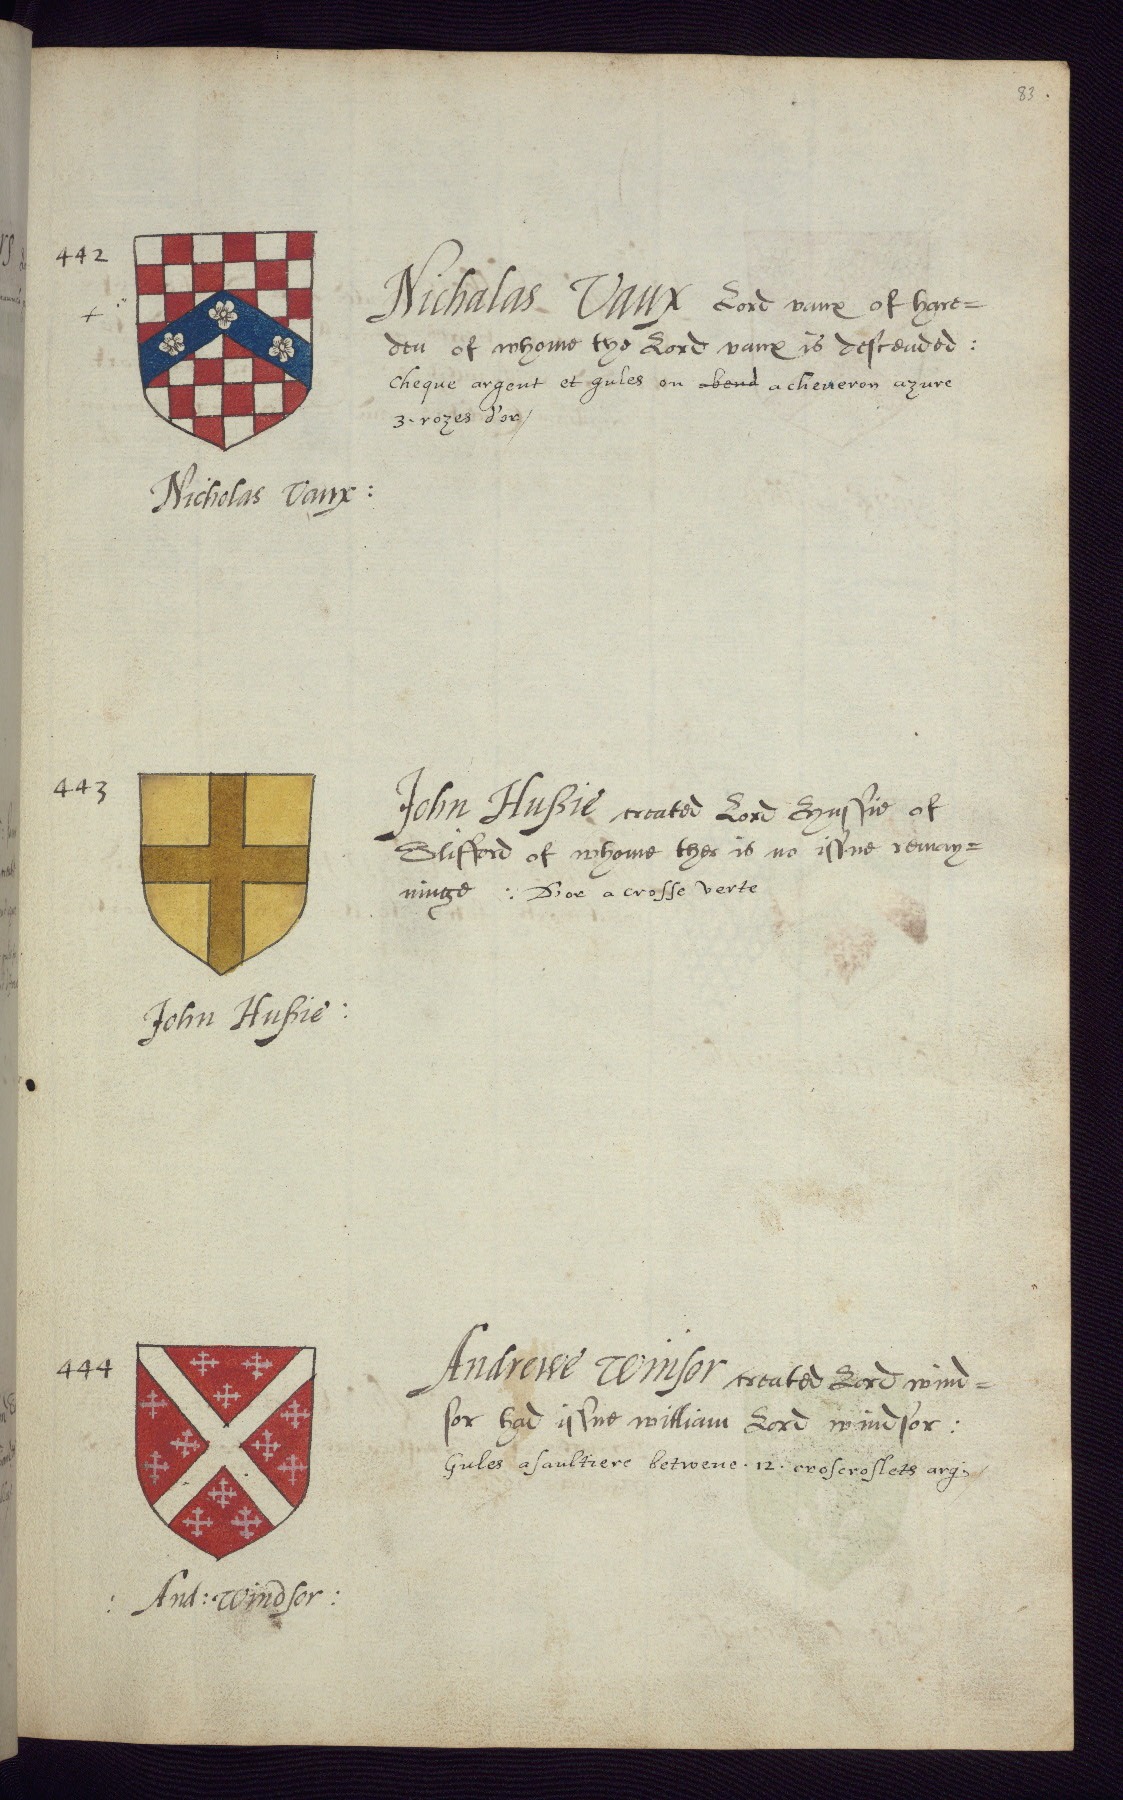 83.
442
+
Nichalas Vaux Lord vaux of hare=
den of whome the Lord vaux is descended :
Cheque argent et gules on bend a cheueron azure
3. rozes d'or/
Nicholas Vaux :
443
John Hussie created Lord Hussie of
Slifford of whome ther is no issue remay=
ninge : D'or a crosse verte
John Hussie :
444
Andrewe Winsor created Lord wind=
sor had issue william Lord windsor :
Gules a saultiere betwene . 12 . croscroslets arg:
: And: Windsor :